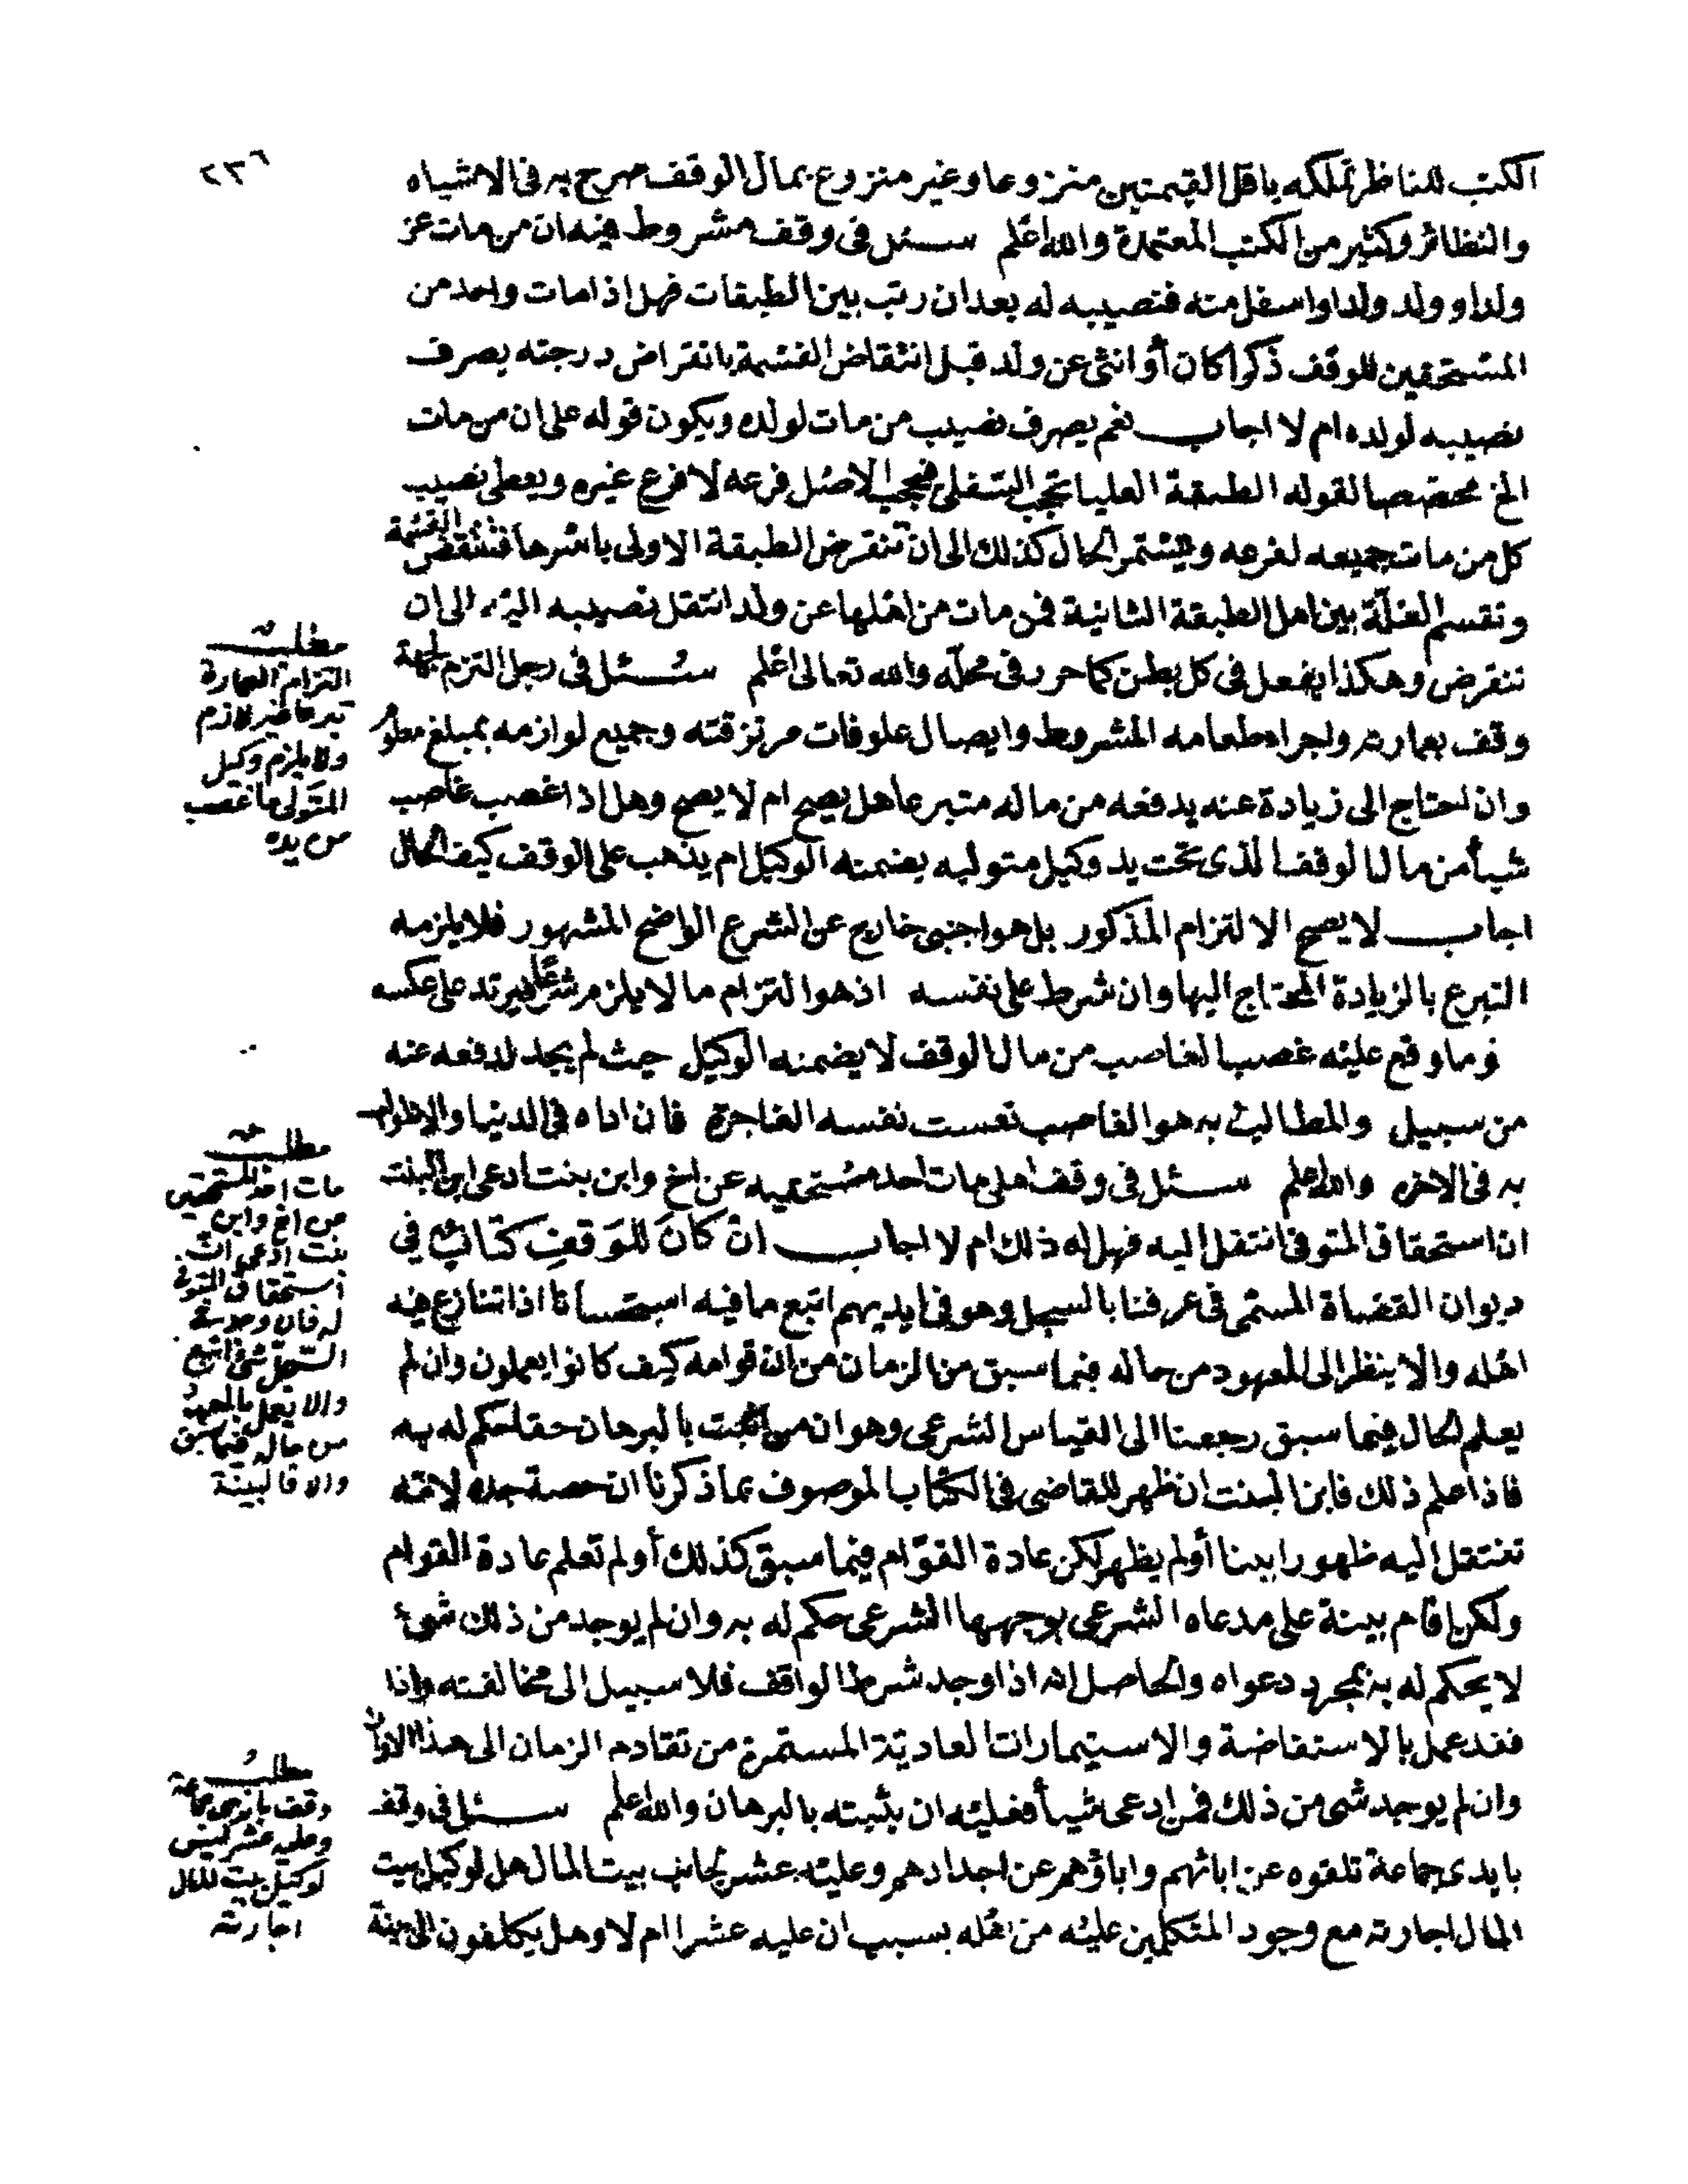 ٢٣٦
الكتب للناظر تملكه باقل القيمتين منزوعا وغير منزوع بمال الوقف صرح به فى الاشباه
والنظائر وكثير من الكتب المعتمدة والله اعلم سئل فى وقف مشروط فيه ان من مات عن
ولد او ولد ولد او اسفل منه فنصيبه له بعد ان رتب بين الطبقات فهل اذا مات واحد من
المستحقين للوقف ذكرا كان أو انثى عن ولد قبل انتقاض القسمة بانقراض درجته يصرف
نصيبه لولده ام لا اجاب نعم يصرف نصيب من مات لولده ويكون قوله على ان من مات
الخ مخصصا لقوله الطبقة العليا تحجب السفلى فيحجب الاصل فرعه لا فرع غيره ويعطى نصيب
كل من مات جميعه لفرعه ويستمر الحال كذلك الى ان تنقرض الطبقة الاولى باسرها فتنتقض القسمة
وتقسم الغلّة بين اهل الطبقة الثانية فمن مات من اهلها عن ولد انتقل نصيبه اليه الى ان
تنقرض وهكذا يفعل فى كل بطن كما حرر فى محلّه والله تعالى اعلم سئل فى رجل التزم لجهة
وقف بعمارته واجراء طعامه المشروط وايصال علوفات مرتزقته وجميع لوازمه بمبلغ معلوم
وان احتاج الى زيادة عنه يدفعه من ماله متبرعا هل يصح ام لا يصح وهل اذا غصب غاصب
شيأ من مال الوقف الذى تحت يد وكيل متوليه يضمنه الوكيل ام يذهب على الوقف كيف الحال
اجاب لا يصح الالتزام المذكور بل هو اجنبى خارج عن الشرع الواضح المشهور فلا يلزمه
التبرع بالزيادة المحتاج اليها وان شرط على نفسه اذ هو التزام ما لا يلزم شرعًا فيرتد على عكسه
وما وقع عليه غصب الغاصب من مال الوقف لا يضمنه الوكيل حيث لم يجد لدفعه عنه
من سبيل والمطالب به هو الغاصب تعست نفسه الفاجرة فان اداه فى الدنيا والا طولب
به فى الاخره والله اعلم سئل فى وقف اهلى مات احد مستحقيه عن اخ وابن بنت ادعى ابن البنت
ان استحقاق المتوفى انتقل اليه فهل له ذلك ام لا اجاب ان كان للوقف كتاب في
ديوان القضاة المسمى فى عرفنا بالسجل وهو فى ايديهم اتبع ما فيه استحسانا اذا تنازع فيه
اهله والا ينظر الى المعهود من حاله فيما سبق من الزمان من ان قوامه كيف كانوا يعملون وان لم
يعلم الحال فيما سبق رجعنا الى القياس الشرعى وهو ان من اثبت بالبرهان حقا حكم له به
فاذا علم ذلك فابن البنت ان ظهر للقاضى فى الكتاب الموصوف بما ذكرنا ان حصة جده لامه
تنتقل اليه ظهورا بينا أو لم يظهر لكن عادة القوّام فيما سبق كذلك أو لم تعلم عادة القوام
ولكن اقام بينة على مدعاه الشرعى بوجهها الشرعى حكم له به وان لم يوجد من ذلك شىء
لا يحكم له به بمجرد دعواه والحاصل انه اذا وجد شرط الواقف فلا سبيل الى مخالفته واذا
فقد عمل بالاستفاضة والاستيمارات العادية المستمرة من تقادم الزمان الى هذا الاوان
وان لم يوجد شى من ذلك فمن ادعى شيأ فعليه ان يثبته بالبرهان والله اعلم سئل فى وقف
بايدى جماعة تلقوه عن ابائهم واباؤهم عن اجدادهم وعليه عشر لجانب بيت المال هل لوكيل بيت
المال اجارته مع وجود المتكلمين عليه من اهله بسبب ان عليه عشرا ام لا وهل يكلفون الى بينة
مطلب
التزام العمارة
تبرعا غير لازم
ولا يلزم وكيل
المتولى ما غصب
من يده
مطلب
مات احد المستحقين
عن اخ وابن
بنت ادعى ان
استحقاق المتوفى
له فان وجد فى
السجل شئ اتبع
والا يعمل بالمعهود
من حاله فيما سبق
والا فالبينة
مطلب
وقف بايدى جماعة
وعليه عشر ليس
لوكيل بيت المال
اجارته